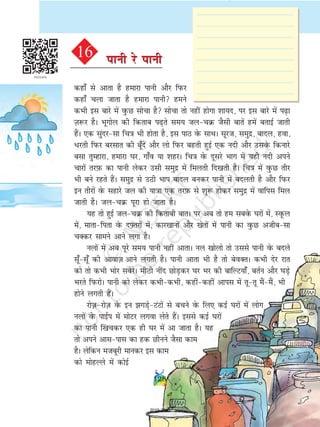 16
पानी रे पानी
कहाँ से आता है हमारा पानी और फिर
कहाँ चला जाता है हमारा पानी? हमने
कभी इस बारे में कुछ सोचा है? सोचा तो नहीं होगा शायद, पर इस बारे में पढ़ा
ज़रूर है। भूगोल की किताब पढ़ते समय जल-चक्र जैसी बातें हमें बताई जाती
हैं। एक सुंदर-सा चित्र भी होता है, इस पाठ के साथ। सूरज, समुद्र, बादल, हवा,
धरती फिर बरसात की बूँदें और लो फिर बहती हुई एक नदी और उसके किनारे
बसा तुम्हारा, हमारा घर, गाँव या शहर। चित्र के दूसरे भाग में यही नदी अपने
चारों तरफ़ का पानी लेकर उसी समुद्र में मिलती दिखती है। चित्र में कुछ तीर
भी बने रहते हैं। समुद्र से उठी भाप बादल बनकर पानी में बदलती है और फिर
इन तीरों के सहारे जल की यात्रा एक तरफ़ से शुरू होकर समुद्र में वापिस मिल
जाती है। जल-चक्र पूरा हो जाता है।
यह तो हुई जल-चक्र की किताबी बात। पर अब तो हम सबके घरों में, स्कूल
में, माता-पिता के दफ़्तरों में, कारखानों और खेतों में पानी का कुछ अजीब-सा
चक्कर सामने आने लगा है।
नलों में अब पूरे समय पानी नहीं आता। नल खोलो तो उससे पानी के बदले
सूँ-सूँ की आवाज़ आने लगती है। पानी आता भी है तो बेवक्त। कभी देर रात
को तो कभी भोर सबेरे। मीठी नींद छोड़कर घर भर की बाल्टियाँ, बर्तन और घड़े
भरते फिरो। पानी को लेकर कभी-कभी, कहीं-कहीं आपस में तू-तू मैं-मैं, भी
होने लगती है।
रोज़-रोज़ के इन झगड़े-टंटों से बचने के लिए कई घरों में लोग
नलों के पाईप में मोटर लगवा लेते हैं। इससे कई घरों
का पानी खिंचकर एक ही घर में आ जाता है। यह
तो अपने आस-पास का हक छीनने जैसा काम
है। लेकिन मजबूरी मानकर इस काम
को मोहल्ले में कोई